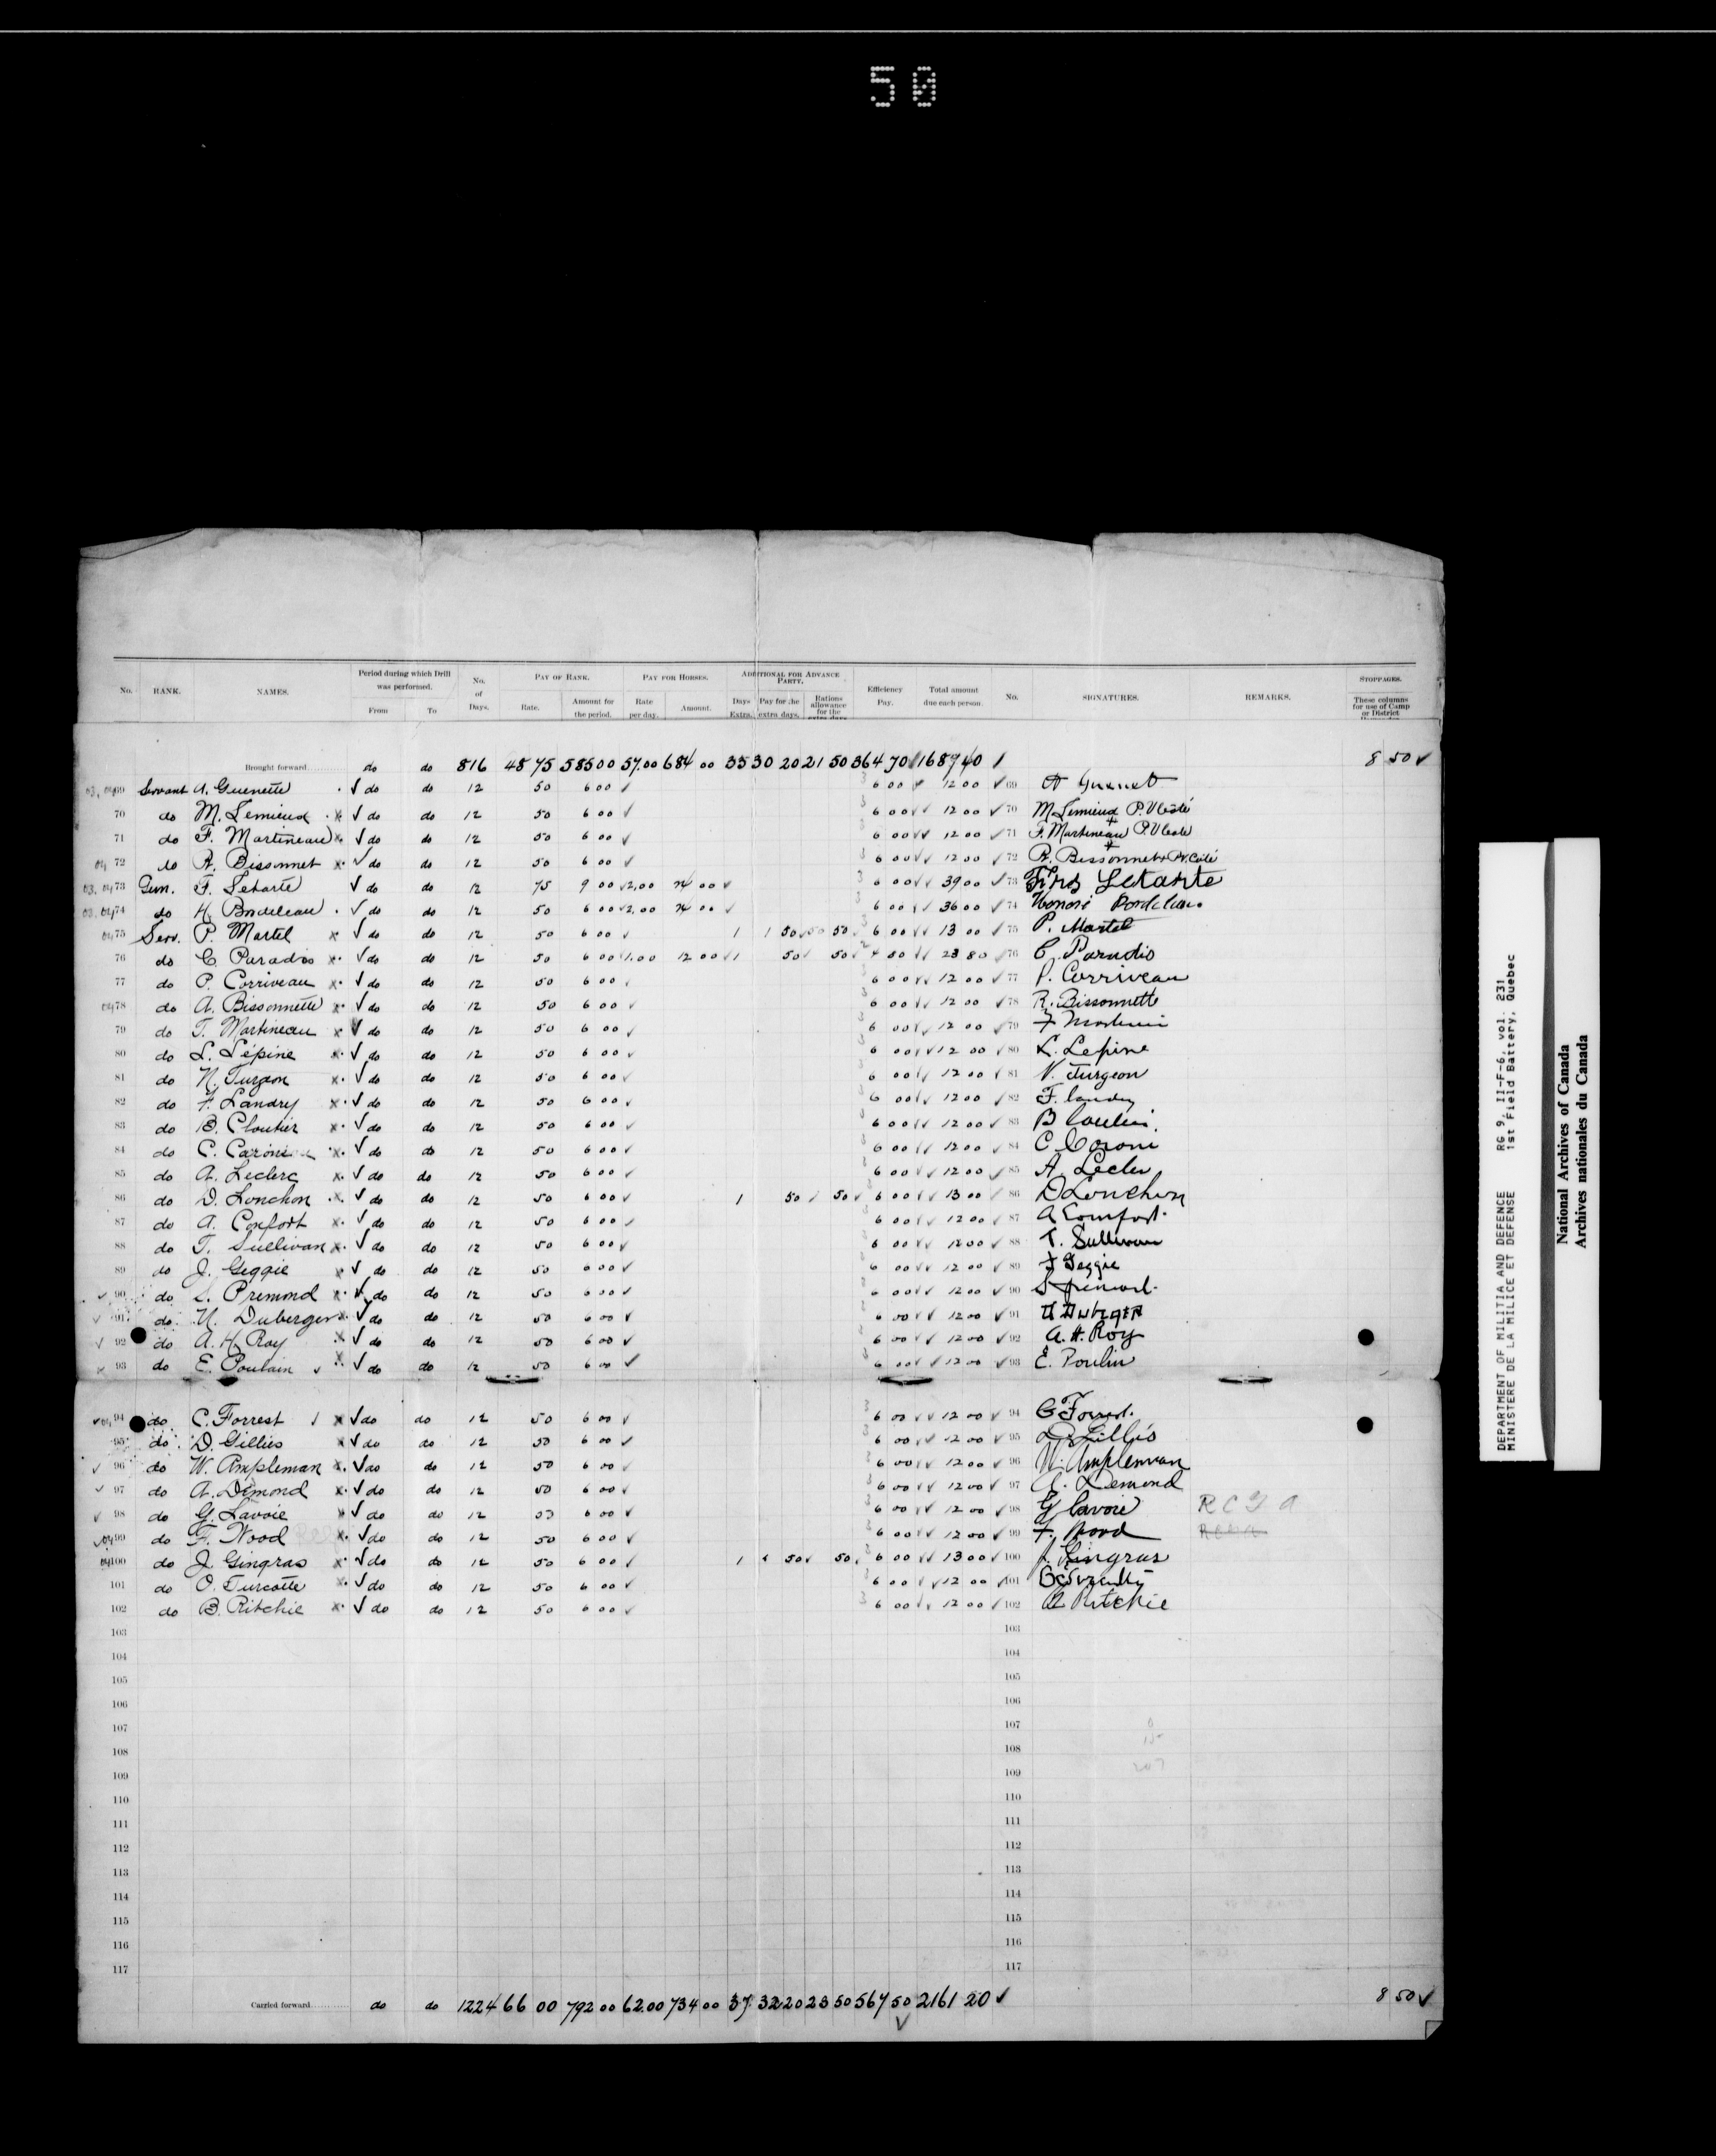 50
No. RANK. NAMES. Period during which Drill was performed. From To No. of Days. PAY OF RANK. Rate. Amount for the period. PAY FOR HORSES. Rate per day. Amount. ADDITIONAL FOR ADVANCE PARTY. Days Extra. Pay for the extra days. Rations allowance for the extra days Efficiency Pay. Total amount due each person. No. SIGNATURES. REMARKS. STOPPAGES. These columns for use of Camp or District
Brought forward do do 816 48 75 585 00 57.00 684 00 35 30 20 21 50 364 70 1687 40 8 50
69 Servant A. Guenette do do 12 50 6 00 6 00 12 00 69
70 do M. Lemieux do do 12 50 6 00 6 00 12 00 70 M Lemieux
71 do F. Martineau do do 12 50 6 00 6 00 12 00 71 F. Martineau
72 do R. Bissonnet do do 12 50 6 00 6 00 12 00 72 R. Bissonnet
73 Gun. F. Letarte do do 12 75 9 00 2,00 24 00 6 00 39 00 73 Letarte
74 do H. Bordeleau do do 12 50 6 00 2,00 24 00 6 00 36 00 74 Honoré Bordeleau
75 Serv. P. Martel do do 12 50 6 00 1 50 50 6 00 13 00 75 P. Martel
76 do C. Paradis do do 12 50 6 00 1.00 12 00 1 50 50 4 80 23 80 76 C. Paradis
77 do P. Corriveau do do 12 50 6 00 6 00 12 00 77 P. Corriveau
78 do A. Bissonnette do do 12 50 6 00 6 00 12 00 78 R. Bissonnette
79 do T. Martineau do do 12 50 6 00 6 00 12 00 79
80 do L. Lépine do do 12 50 6 00 6 00 12 00 80 L. Lepine
81 do N. Turgeon do do 12 50 6 00 6 00 12 00 81 N. Turgeon
82 do F. Landry do do 12 50 6 00 6 00 12 00 82 F. Landry
83 do B. Cloutier do do 12 50 6 00 6 00 12 00 83
84 do C. do do 12 50 6 00 6 00 12 00 84
85 do A. Leclerc do do 12 50 6 00 6 00 12 00 85 A. Lecler
86 do D. Lonchon do do 12 50 6 00 1 50 50 6 00 13 00 86 D Lonchon
87 do A. Comfort do do 12 50 6 00 6 00 12 00 87 A Comfort
88 do T. Sullivan do do 12 50 6 00 6 00 12 00 88 T. Sullivan
89 do J. Geggie do do 12 50 6 00 6 00 12 00 89 J Geggie
90 do Premmond do do 12 50 6 00 6 00 12 00 90
91 do N. Duberger do do 12 50 6 00 6 00 12 00 91
92 do A. H. Roy do do 12 50 6 00 6 00 12 00 92 A. H. Roy
93 do E. Poulain do do 12 50 6 00 6 00 12 00 93 E. Poulin
94 do C. Forrest do do 12 50 6 00 6 00 12 00 94 C Forrest
95 do D. Gillies do do 12 50 6 00 6 00 12 00 95 D. Gillies
96 do W. Ampleman do do 12 50 6 00 6 00 12 00 96 W. Ampleman
97 do A. Demond do do 12 50 6 00 6 00 12 00 97 A. Demond
98 do G. Lavoie do do 12 50 6 00 6 00 12 00 98 G Lavoie R C G A
99 do F. Wood do do 12 50 6 00 6 00 12 00 99 F. Wood
100 do J. Gingras do do 12 50 6 00 1 50 50 6 00 13 00 100 J. Gingras
101 do O. Turcotte do do 12 50 6 00 6 00 12 00 101
102 do B. Ritchie do do 12 50 6 00 6 00 12 00 102 B Ritchie
103 103
104 104
105 105
106 106
107 107
108 108
109 109
110 110
111 111
112 112
113 113
114 114
115 115
116 116
117 117
Carried forward do do 1224 66 00 792 00 62.00 734 00 37 32 20 23 50 567 50 2161 20 8 50
DEPARTMENT OF MILITIA AND DEFENCE RG 9, II-F-6, vol. 231
MINISTERE DE LA MILICE ET DEFENSE 1st Field Battery, Quebec
National Archives of Canada
Archives nationales du Canada